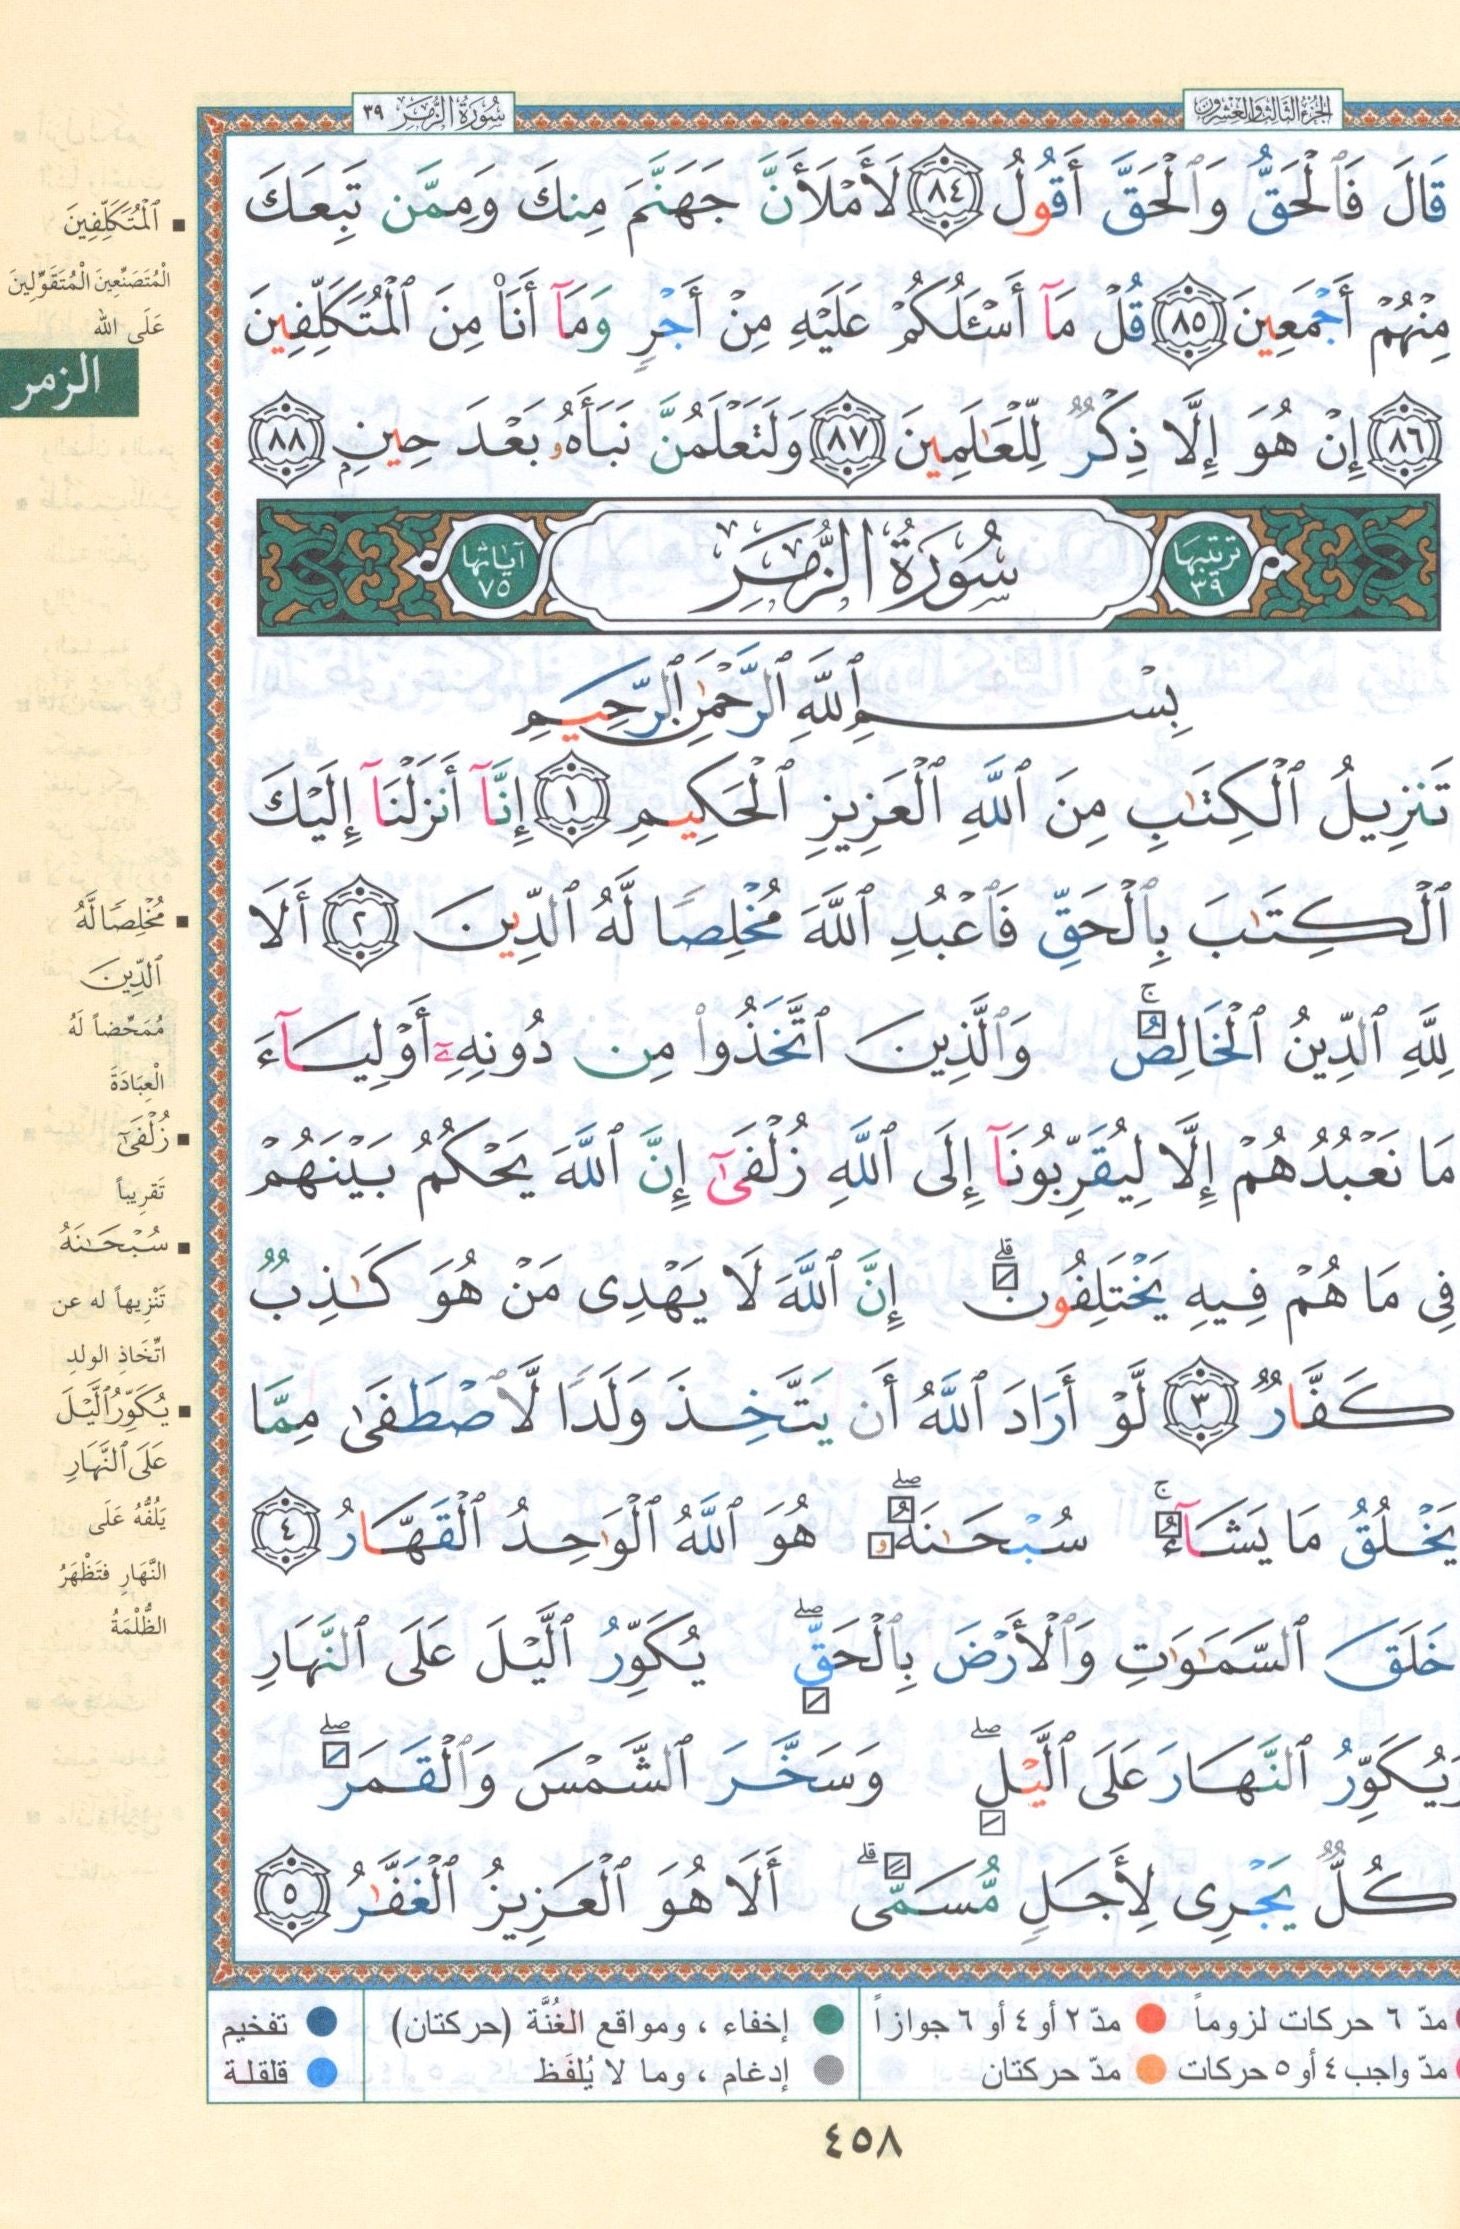 الجزء الثالث والعشرون
سُورَةُ الزُّمَرِ ٣٩
قَالَ فَٱلْحَقُّ وَٱلْحَقَّ أَقُولُ ٨٤ لَأَمْلَأَنَّ جَهَنَّمَ مِنكَ وَمِمَّن تَبِعَكَ
مِنْهُمْ أَجْمَعِينَ ٨٥ قُلْ مَآ أَسْـَٔلُكُمْ عَلَيْهِ مِنْ أَجْرٍ وَمَآ أَنَا۠ مِنَ ٱلْمُتَكَلِّفِينَ
٨٦ إِنْ هُوَ إِلَّا ذِكْرٌ لِّلْعَـٰلَمِينَ ٨٧ وَلَتَعْلَمُنَّ نَبَأَهُۥ بَعْدَ حِينٍ ٨٨
ترتيبها ٣٩
سُورَةُ الزُّمَرِ
آياتها ٧٥
بِسْمِ ٱللَّهِ ٱلرَّحْمَـٰنِ ٱلرَّحِيمِ
تَنزِيلُ ٱلْكِتَـٰبِ مِنَ ٱللَّهِ ٱلْعَزِيزِ ٱلْحَكِيمِ ١ إِنَّآ أَنزَلْنَآ إِلَيْكَ
ٱلْكِتَـٰبَ بِٱلْحَقِّ فَٱعْبُدِ ٱللَّهَ مُخْلِصًا لَّهُ ٱلدِّينَ ٢ أَلَا
لِلَّهِ ٱلدِّينُ ٱلْخَالِصُ ۚ وَٱلَّذِينَ ٱتَّخَذُوا۟ مِن دُونِهِۦٓ أَوْلِيَآءَ
مَا نَعْبُدُهُمْ إِلَّا لِيُقَرِّبُونَآ إِلَى ٱللَّهِ زُلْفَىٰٓ إِنَّ ٱللَّهَ يَحْكُمُ بَيْنَهُمْ
فِى مَا هُمْ فِيهِ يَخْتَلِفُونَ ۗ إِنَّ ٱللَّهَ لَا يَهْدِى مَنْ هُوَ كَـٰذِبٌ
كَفَّارٌ ٣ لَّوْ أَرَادَ ٱللَّهُ أَن يَتَّخِذَ وَلَدًا لَّٱصْطَفَىٰ مِمَّا
يَخْلُقُ مَا يَشَآءُ ۚ سُبْحَـٰنَهُۥ ۖ هُوَ ٱللَّهُ ٱلْوَٰحِدُ ٱلْقَهَّارُ ٤
خَلَقَ ٱلسَّمَـٰوَٰتِ وَٱلْأَرْضَ بِٱلْحَقِّ ۖ يُكَوِّرُ ٱلَّيْلَ عَلَى ٱلنَّهَارِ
وَيُكَوِّرُ ٱلنَّهَارَ عَلَى ٱلَّيْلِ ۖ وَسَخَّرَ ٱلشَّمْسَ وَٱلْقَمَرَ ۖ
كُلٌّ يَجْرِى لِأَجَلٍ مُّسَمًّى ۗ أَلَا هُوَ ٱلْعَزِيزُ ٱلْغَفَّـٰرُ ٥
▪ ٱلْمُتَكَلِّفِينَ
الْمُتَصَنِّعِينَ الْمُتَقَوِّلِينَ
عَلَى الله
الزمر
▪ مُخْلِصًا لَّهُ
ٱلدِّينَ
مُمَحِّضاً لَهُ
الْعِبَادَةَ
▪ زُلْفَىٰٓ
تَقرِيباً
▪ سُبْحَـٰنَهُ
تَنْزِيهاً له عن
اتِّخَاذِ الولدِ
▪ يُكَوِّرُ ٱلَّيْلَ
عَلَى ٱلنَّهَارِ
يَلُفُّهُ عَلَى
النَّهَارِ فتَظْهَرُ
الظُّلْمَةُ
مدّ ٦ حركات لزوماً ● مدّ ٢ أو ٤ أو ٦ جوازاً
مدّ واجب ٤ أو ٥ حركات ● مدّ حركتان
● إخفاء ، ومواقع الغُنَّة (حركتان)
● إدغام ، وما لا يُلفَظ
● تفخيم
● قلقلة
٤٥٨